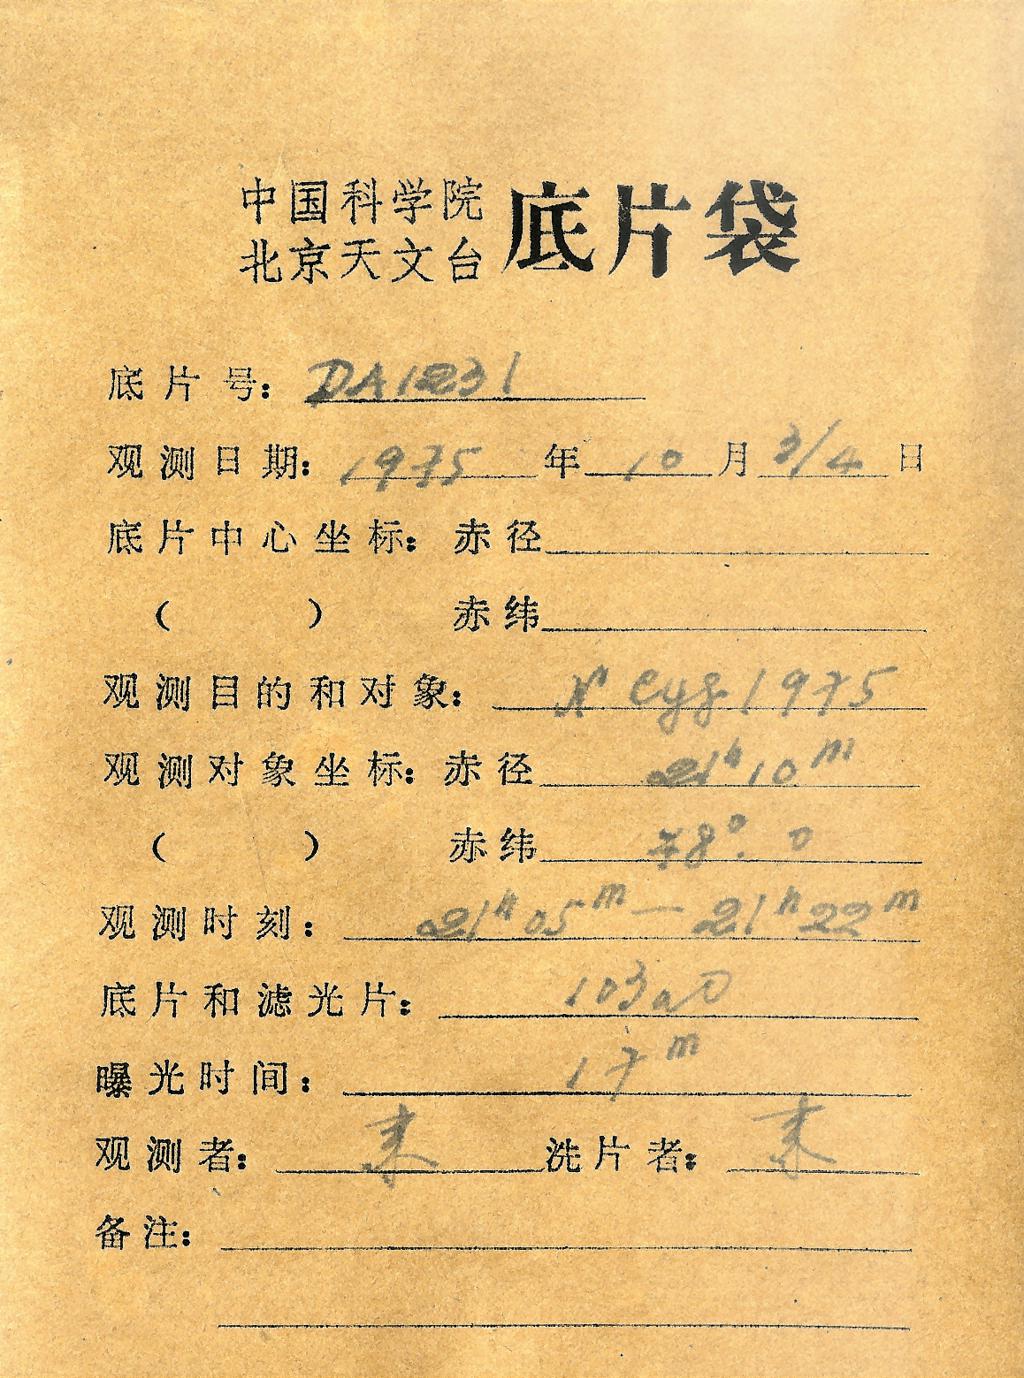 中国科学院
北京天文台
底片袋
底片号: DA1231
观测日期: 1975年10月3/4日
底片中心坐标: 赤径
( ) 赤纬
观测目的和对象: N Cyg 1975
观测对象坐标: 赤径 21h10m
( ) 赤纬 48°.0
观测时刻: 21h05m—21h22m
底片和滤光片: 103aO
曝光时间: 17m
观测者: 洗片者:
备注: